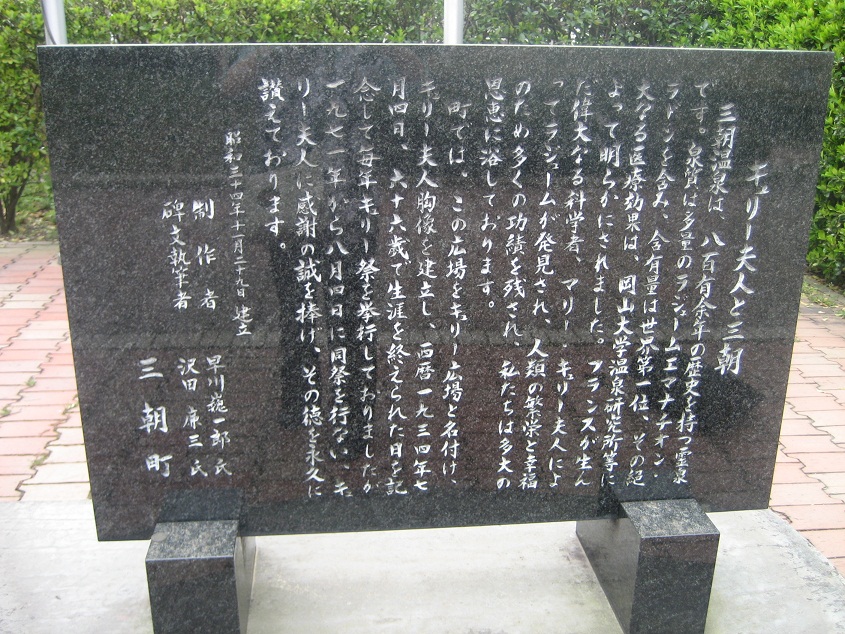 キュリー夫人と三朝
三朝温泉は、八百有余年の歴史を持つ霊泉
です。泉質は多量のラジュームエマナチオン・
ラドンを含み、含有量は世界第一位、その絶
大なる医療効果は、岡山大学温泉研究所等に
よって明らかにされました。フランスが生ん
だ偉大なる科学者、マリー・キュリー夫人によ
ってラジュームが発見され、人類の繁栄と幸福
のため多くの功績を残され、私たちは多大の
恩恵に浴しております。
町では、この広場をキュリー広場と名付け、
キュリー夫人胸像を建立し、西暦一九三四年七
月四日、六十六歳で生涯を終えられた日を記
念して毎年キュリー祭を挙行しておりましたが
一九七一年から八月四日に同祭を行ない、キュ
リー夫人に感謝の誠を捧げ、その徳を永久に
讃えております。
昭和三十四年十一月二十九日 建立
制作者 早川巍一郎氏
碑文執筆者 沢田廉三氏
三朝町